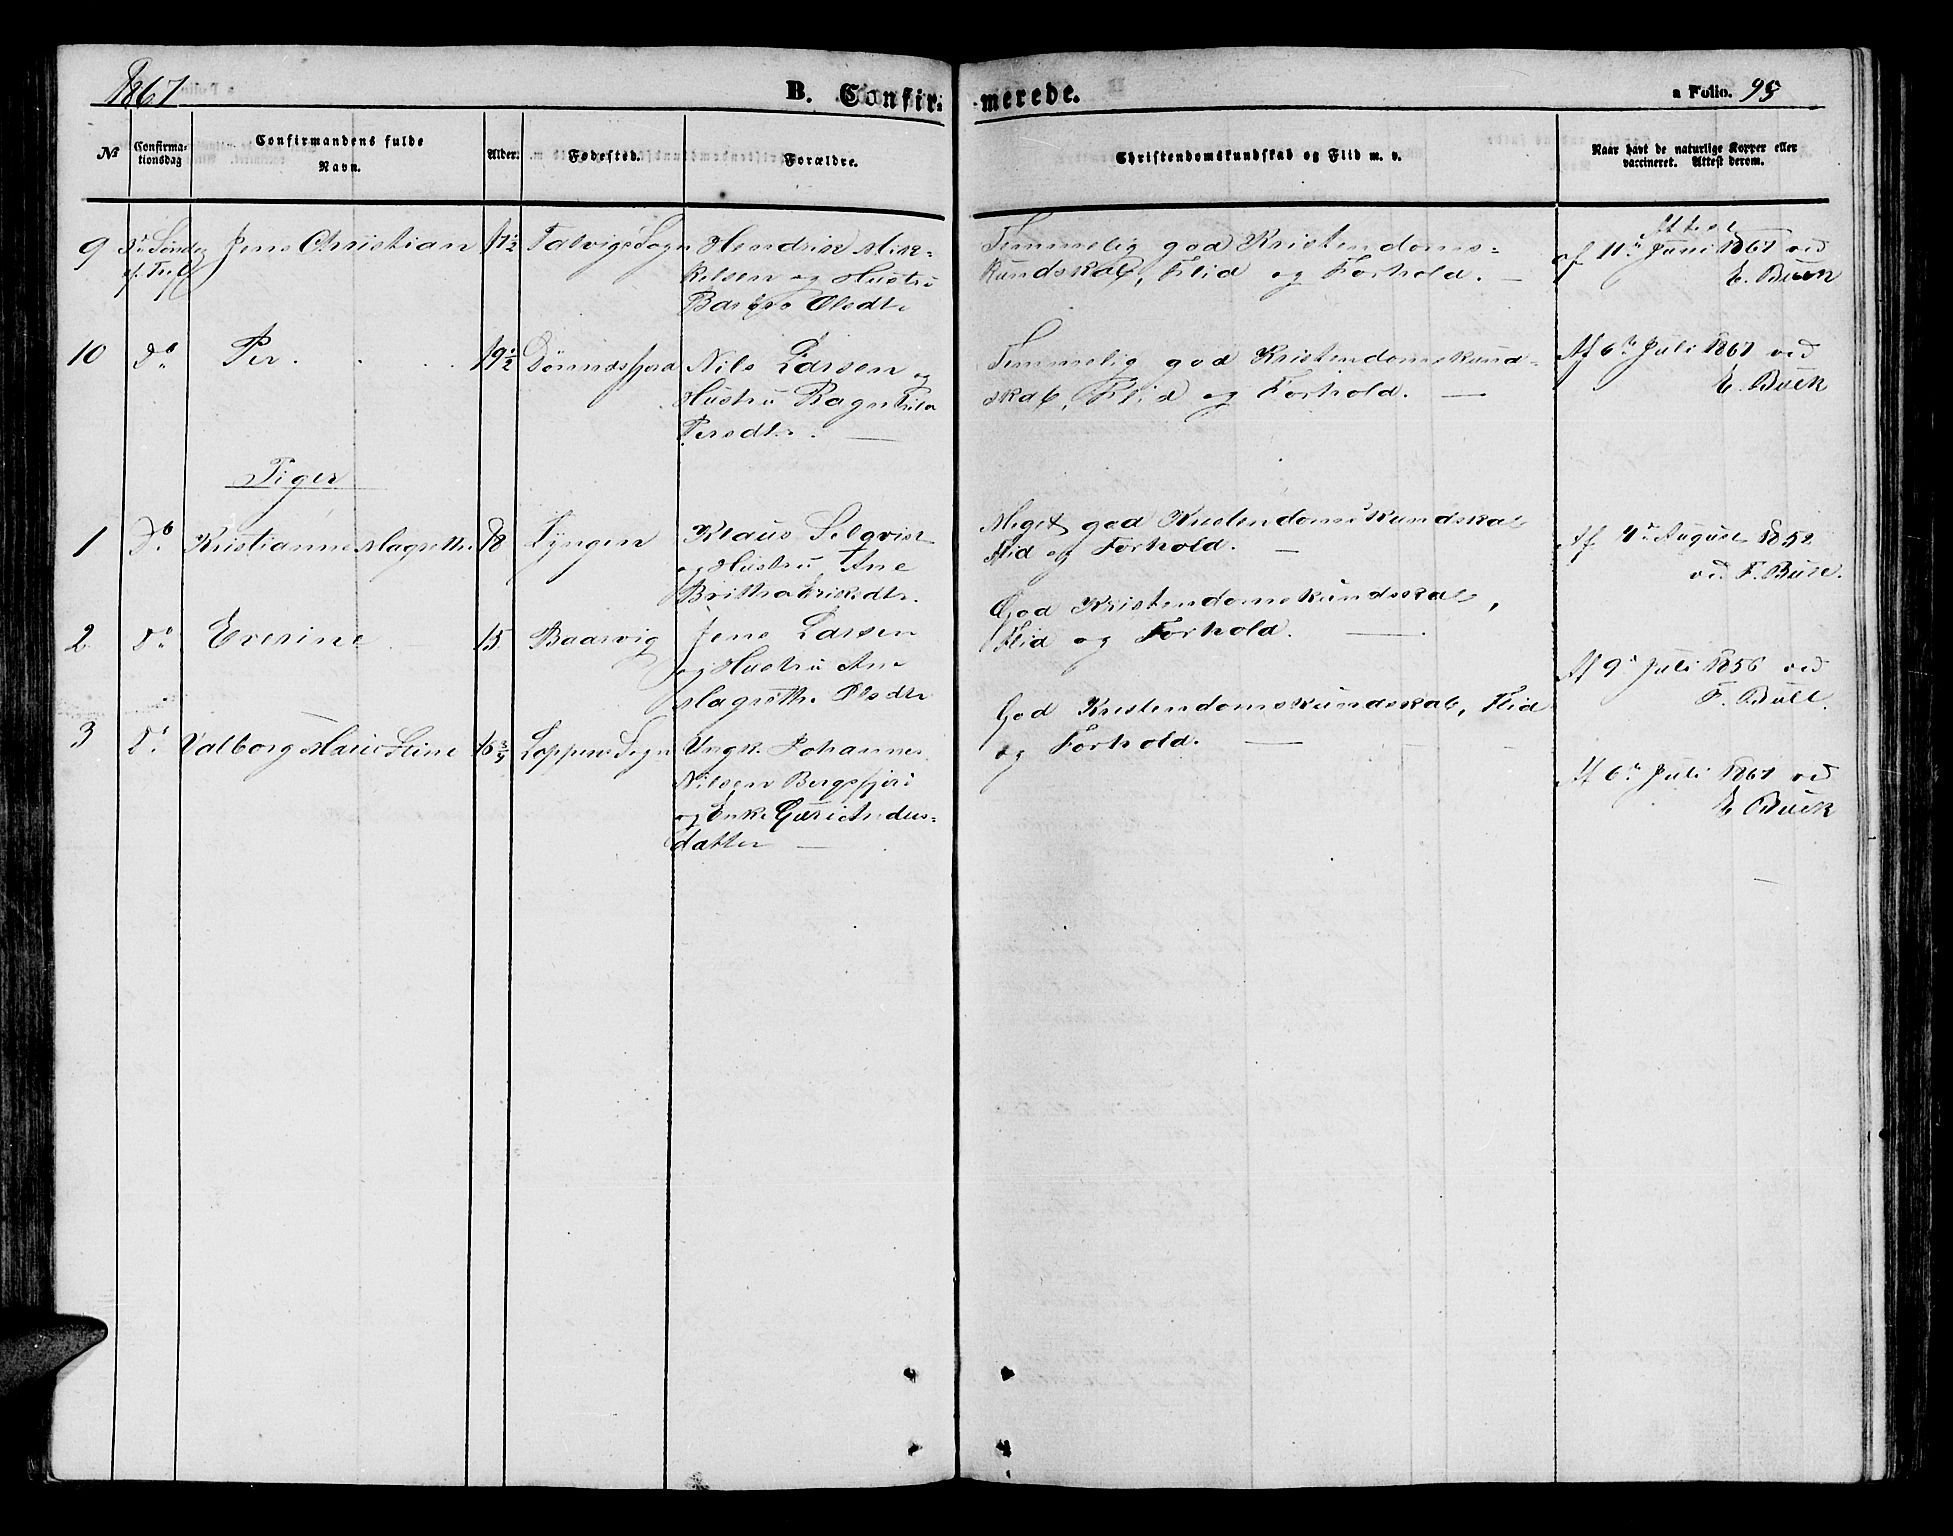 1867
B. Confirmerede.
a Folio. 95
№
Confirmationsdag
Confirmandens fulde Navn.
Alder.
Fødested.
Forældre.
Christendomskundskab og Flid m. v.
Naar havt de naturlige Kopper eller vaccineret. Attest derom.
9
Jens Christian
Talvigs Sogn
Hendrik Mik-
kelsen og Hustru
Olsdtr
Temmelig god Kristendoms-
kundskab, Flid og Forhold. —
Attest
af 11te Juni 1867 ved
E. Buck
10
Do
Per.
19½
Nils Larsen og
Hustru Ragnhild
Persdtr. —
Temmelig god Kristendomskund-
skab, Flid og Forhold. —
Af 6te Juli 1867 ved
E. Buck
Piger
1
Do
Kristianne Magrethe
18
Lyngen
Klaus
og Hustru Ane
Britha Eriksdtr.
Meget god Kristendomskundskab
Flid og Forhold. —
Af 4de August 1852
ved F.
2
Do
Eresine
15
Baarvig
Jens Larsen
og Hustru Ane
Magrethe Olsdtr
God Kristendomskundskab,
Flid og Forhold. —
Af 9de Juli 1856 ved
F. Bull.
3
Do
Valborg Marie Stine
16¾
Loppens Sogn
Ungk. Johannes
Nilsen Bergsfjord
og Enke Guri Anders-
datter —
God Kristendomskundskab, Flid
og Forhold. —
Af 6te Juli 1867 ved
E Buck